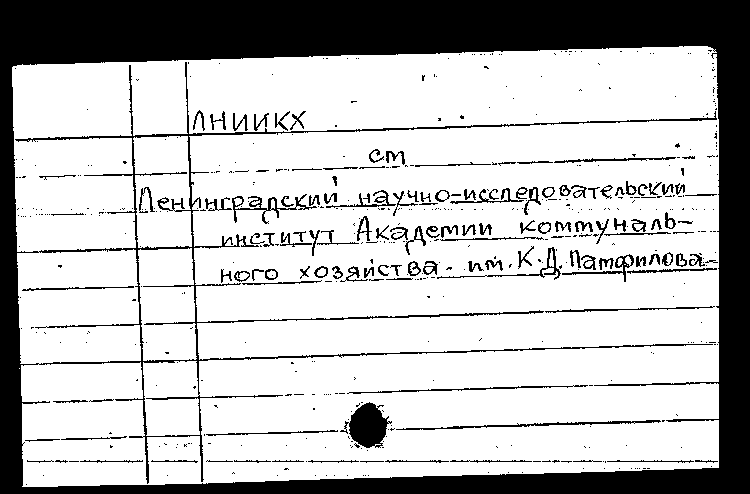 ЛНИИКХ
см
Ленинградский научно-исследовательский
институт Академии коммуналь-
ного хозяйства им. К.Д. Памфилова